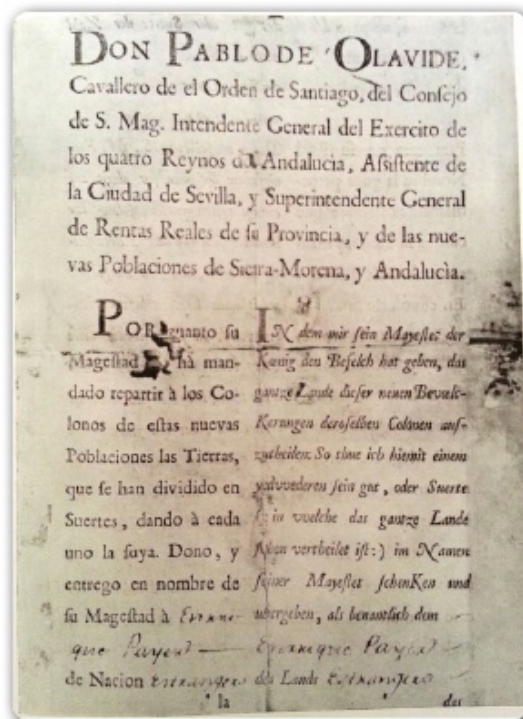 DON PABLO DE OLAVIDE,
Cavallero de el Orden de Santiago, del Consejo
de S. Mag. Intendente General del Exercito de
los quatro Reynos de Andalucia, Assistente de
la Ciudad de Sevilla, y Superintendente General
de Rentas Reales de su Provincia, y de las nue-
vas Poblaciones de Sierra-Morena, y Andalucìa.
POR quanto su
Magestad ha man-
dado repartir à los Co-
lonos de estas nuevas
Poblaciones las Tierras,
que se han dividido en
Suertes, dando à cada
uno la suya. Dono, y
entrego en nombre de
su Magestad à
que Payen
de Nacion Estrangero
la
IN dem mir sein Mayestet der
Kœnig den Befelch hat geben, das
gantze Lande dieser neuen Bevœlc-
Kerungen deroselben Colonen aus-
zutheilen: So thue ich hiemit einem
yedwederen sein gut, oder Suerte
(: in vvelche das gantze Lande
vertheilet ist:) im Namen
seiner Mayestet schenKen und
ubergeben, als benantlich dem
que Payen
des Lands Estrangero
des